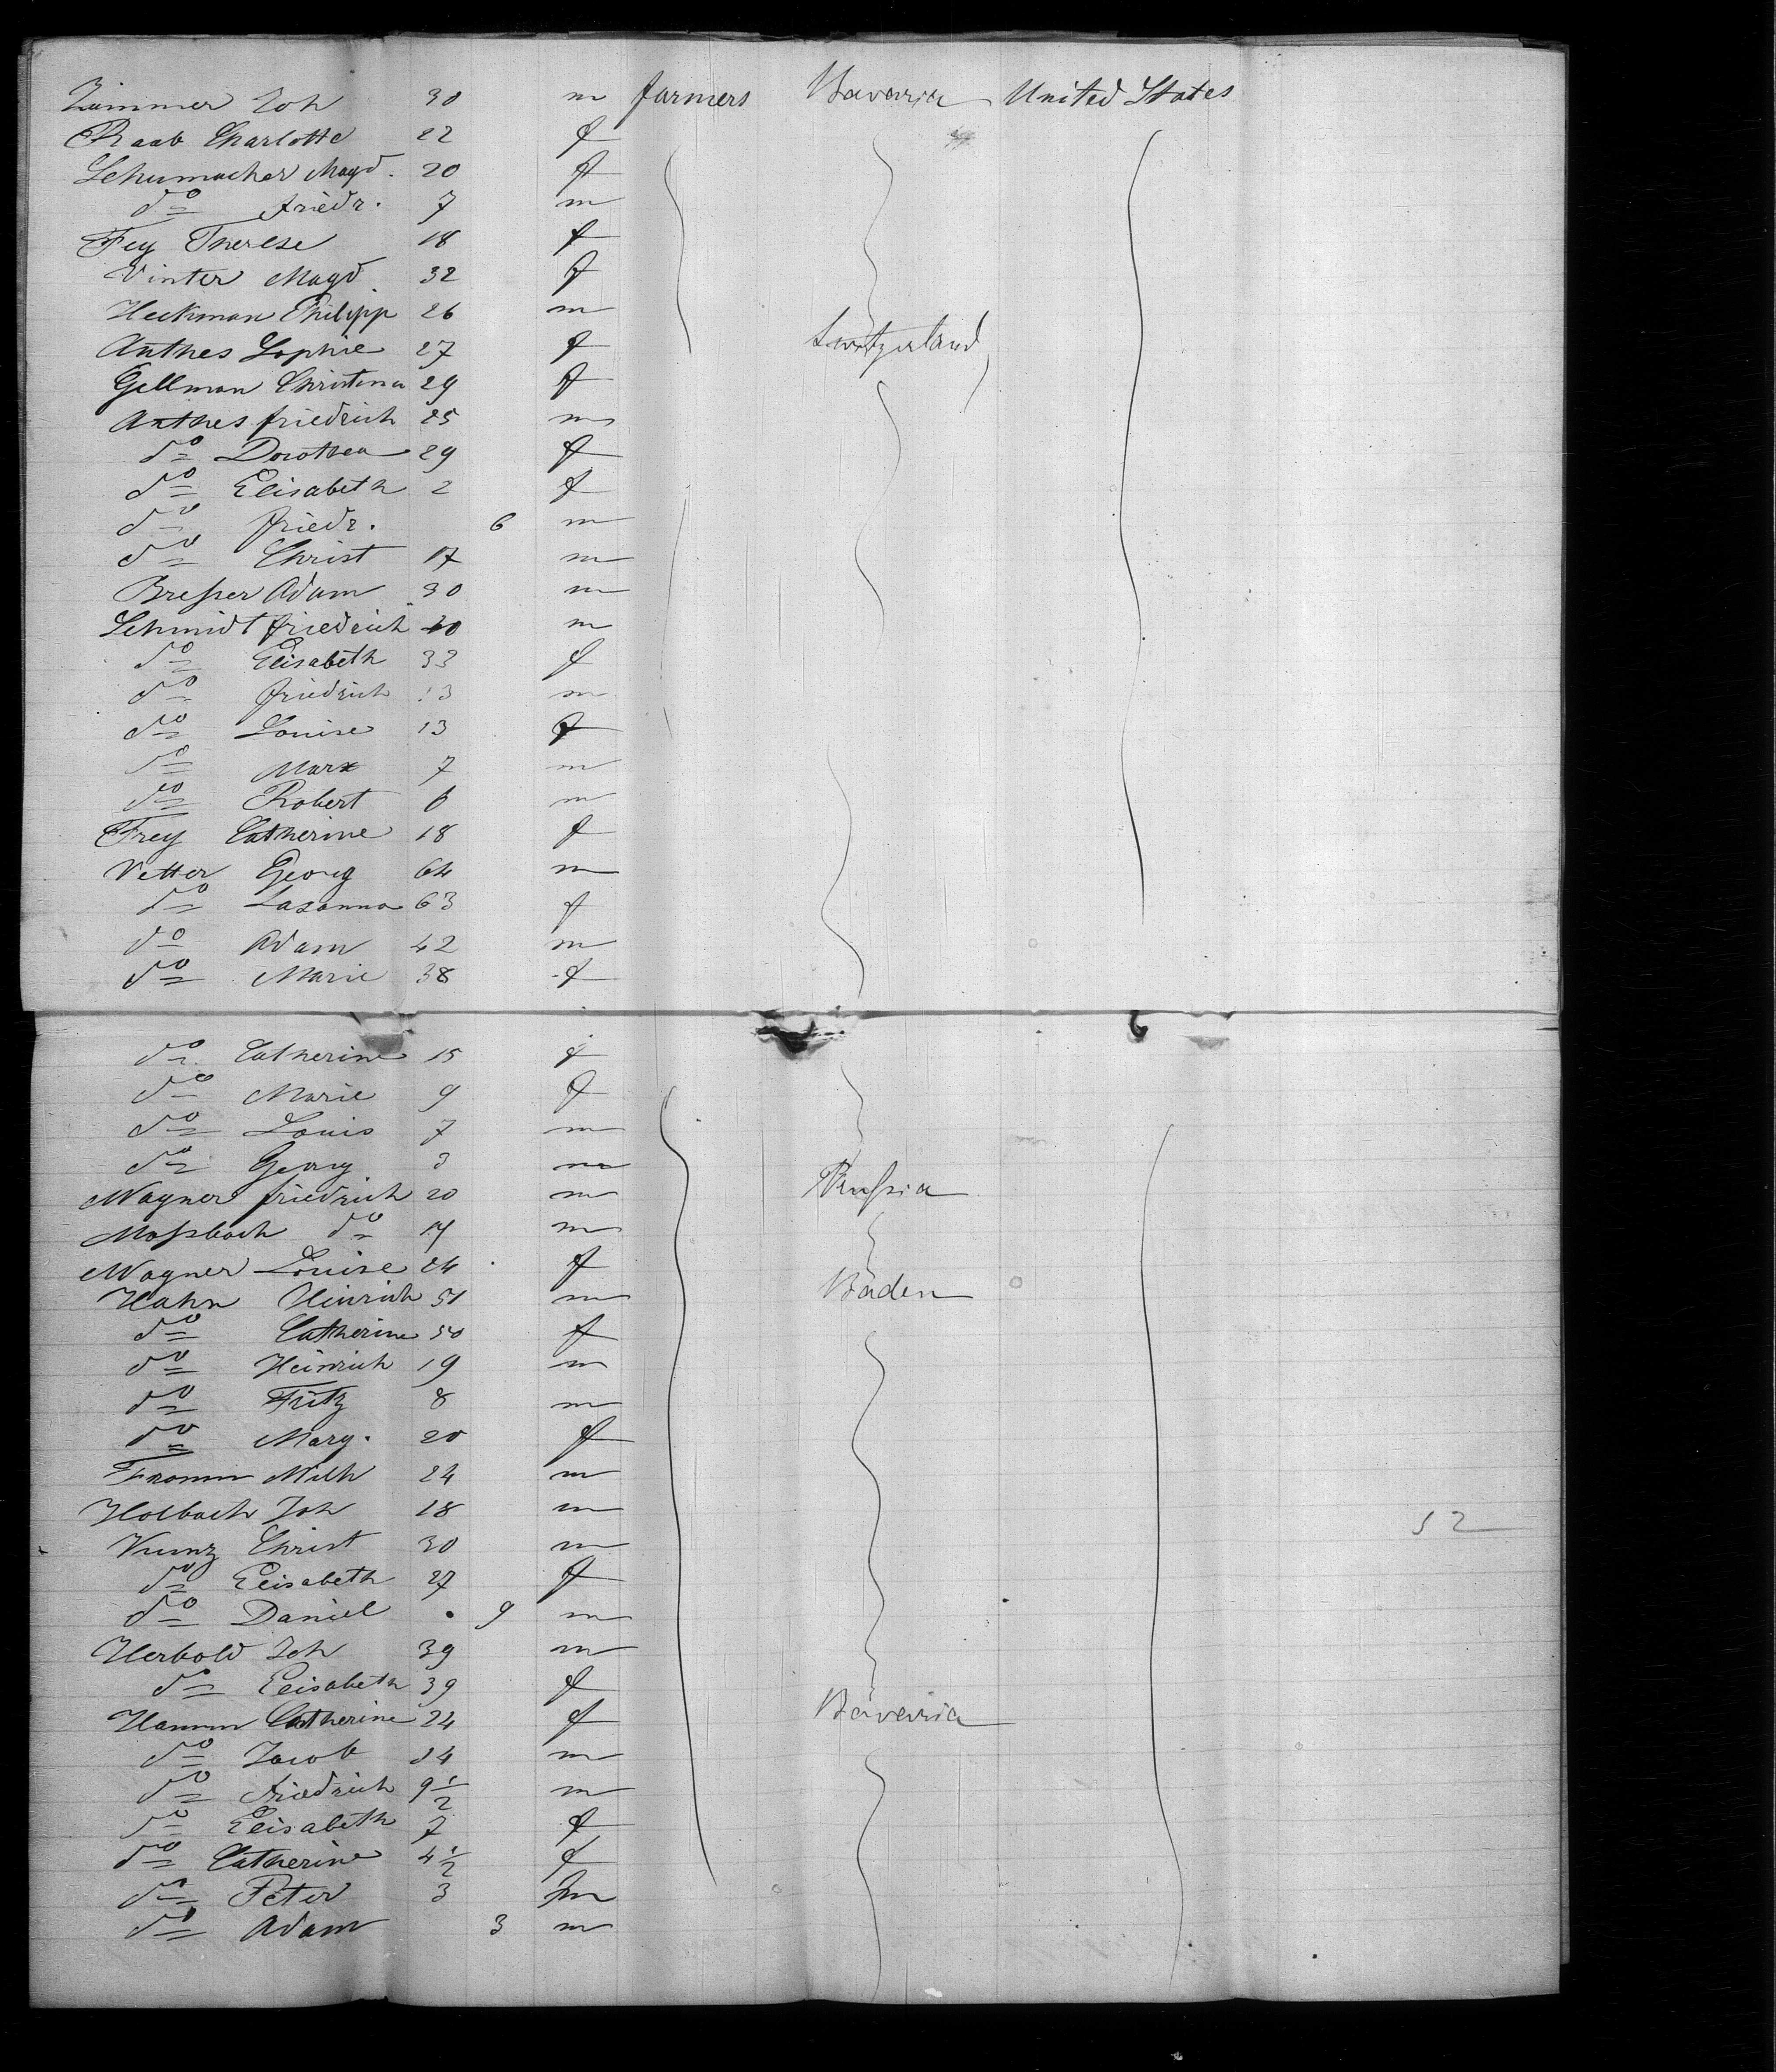 Zimmer Joh 30 m farmers Bavaria United States
Raab Charlotte 22 f
Schumacher Magd. 20 f
do Friedr. 7 m
Fey Therese 18 f
Winter Magd. 32 f
Heckman Philipp 26 m
Anthes Sophie 27 f Switzerland
Gellman Christina 29 f
Anthes friedrich 25 m
do Dorothea 29 f
do Elisabeth 2 f
do friedr. 6 m
do Christ 17 m
Breſser Adam 30 m
Schmidt friedrich 40 m
do Elisabeth 33 f
do friedrich 13 m
do Louise 13 f
do Marx 7 m
do Robert 6 m
Frey Catherine 18 f
Vetter Georg 64 m
do Susanna 63 f
do Adam 42 m
do Marie 38 f
do Catherine 15 f
do Marie 9 f
do Louis 7 m
do Georg 3 m
Wagner friedrich 20 m Pruſsia
Moſsbach do m
Wagner Louise 24 f
Hahn Heinrich 51 m Baden
do Catherine 50 f
do Heinrich 19 m
do Fritz 8 m
do Marg. 20 f
Fromm Wilh 24 m
Holbach Joh 18 m 52
Kunz Christ 30 m
do Elisabeth 27 f
do Daniel 9 m
Herbold Joh 39 m
do Elisabeth 39 f
Hamm Catherine 24 f Bavaria
do Jacob 34 m
do friedrich 9 1/2 m
do Elisabeth 7 f
do Catherine 4 1/2 f
do Peter 3 m
do Adam 3 m